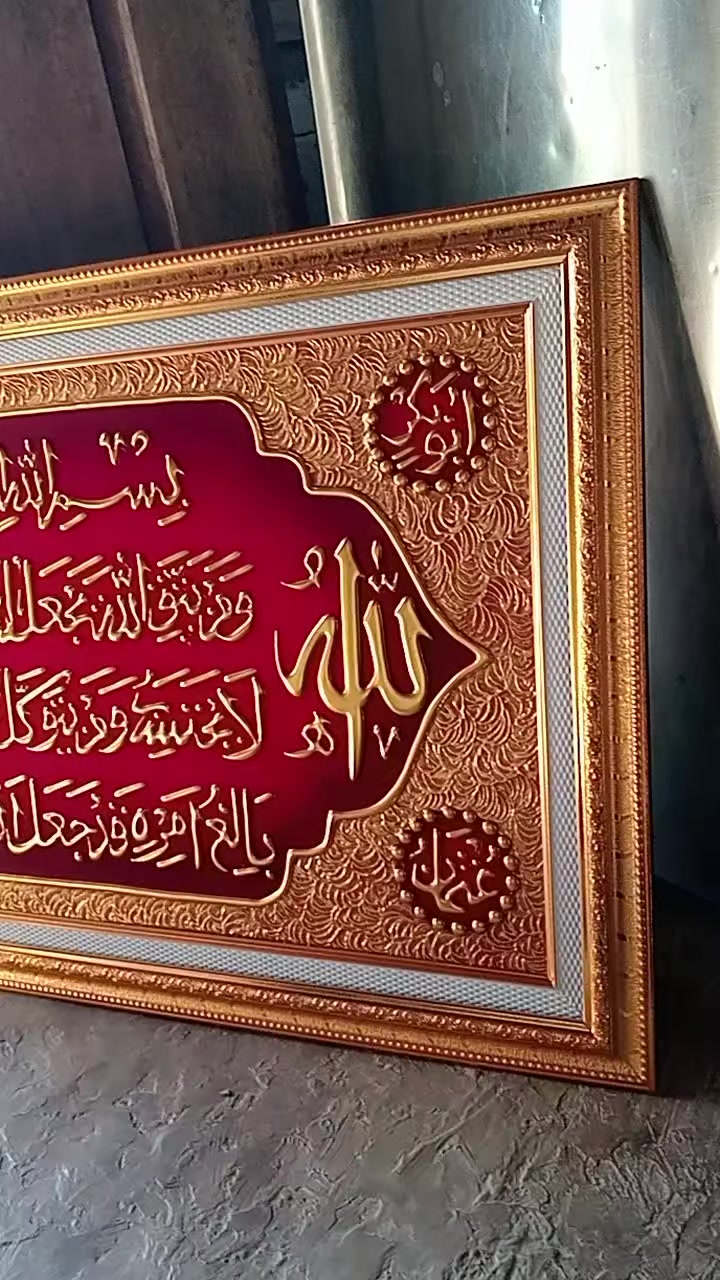 ابوبكر
بسم الله
ومن يتق الله يجعل
الله
لا يحتسب ومن يتوكل
بالغ امره قد جعل
عثمان